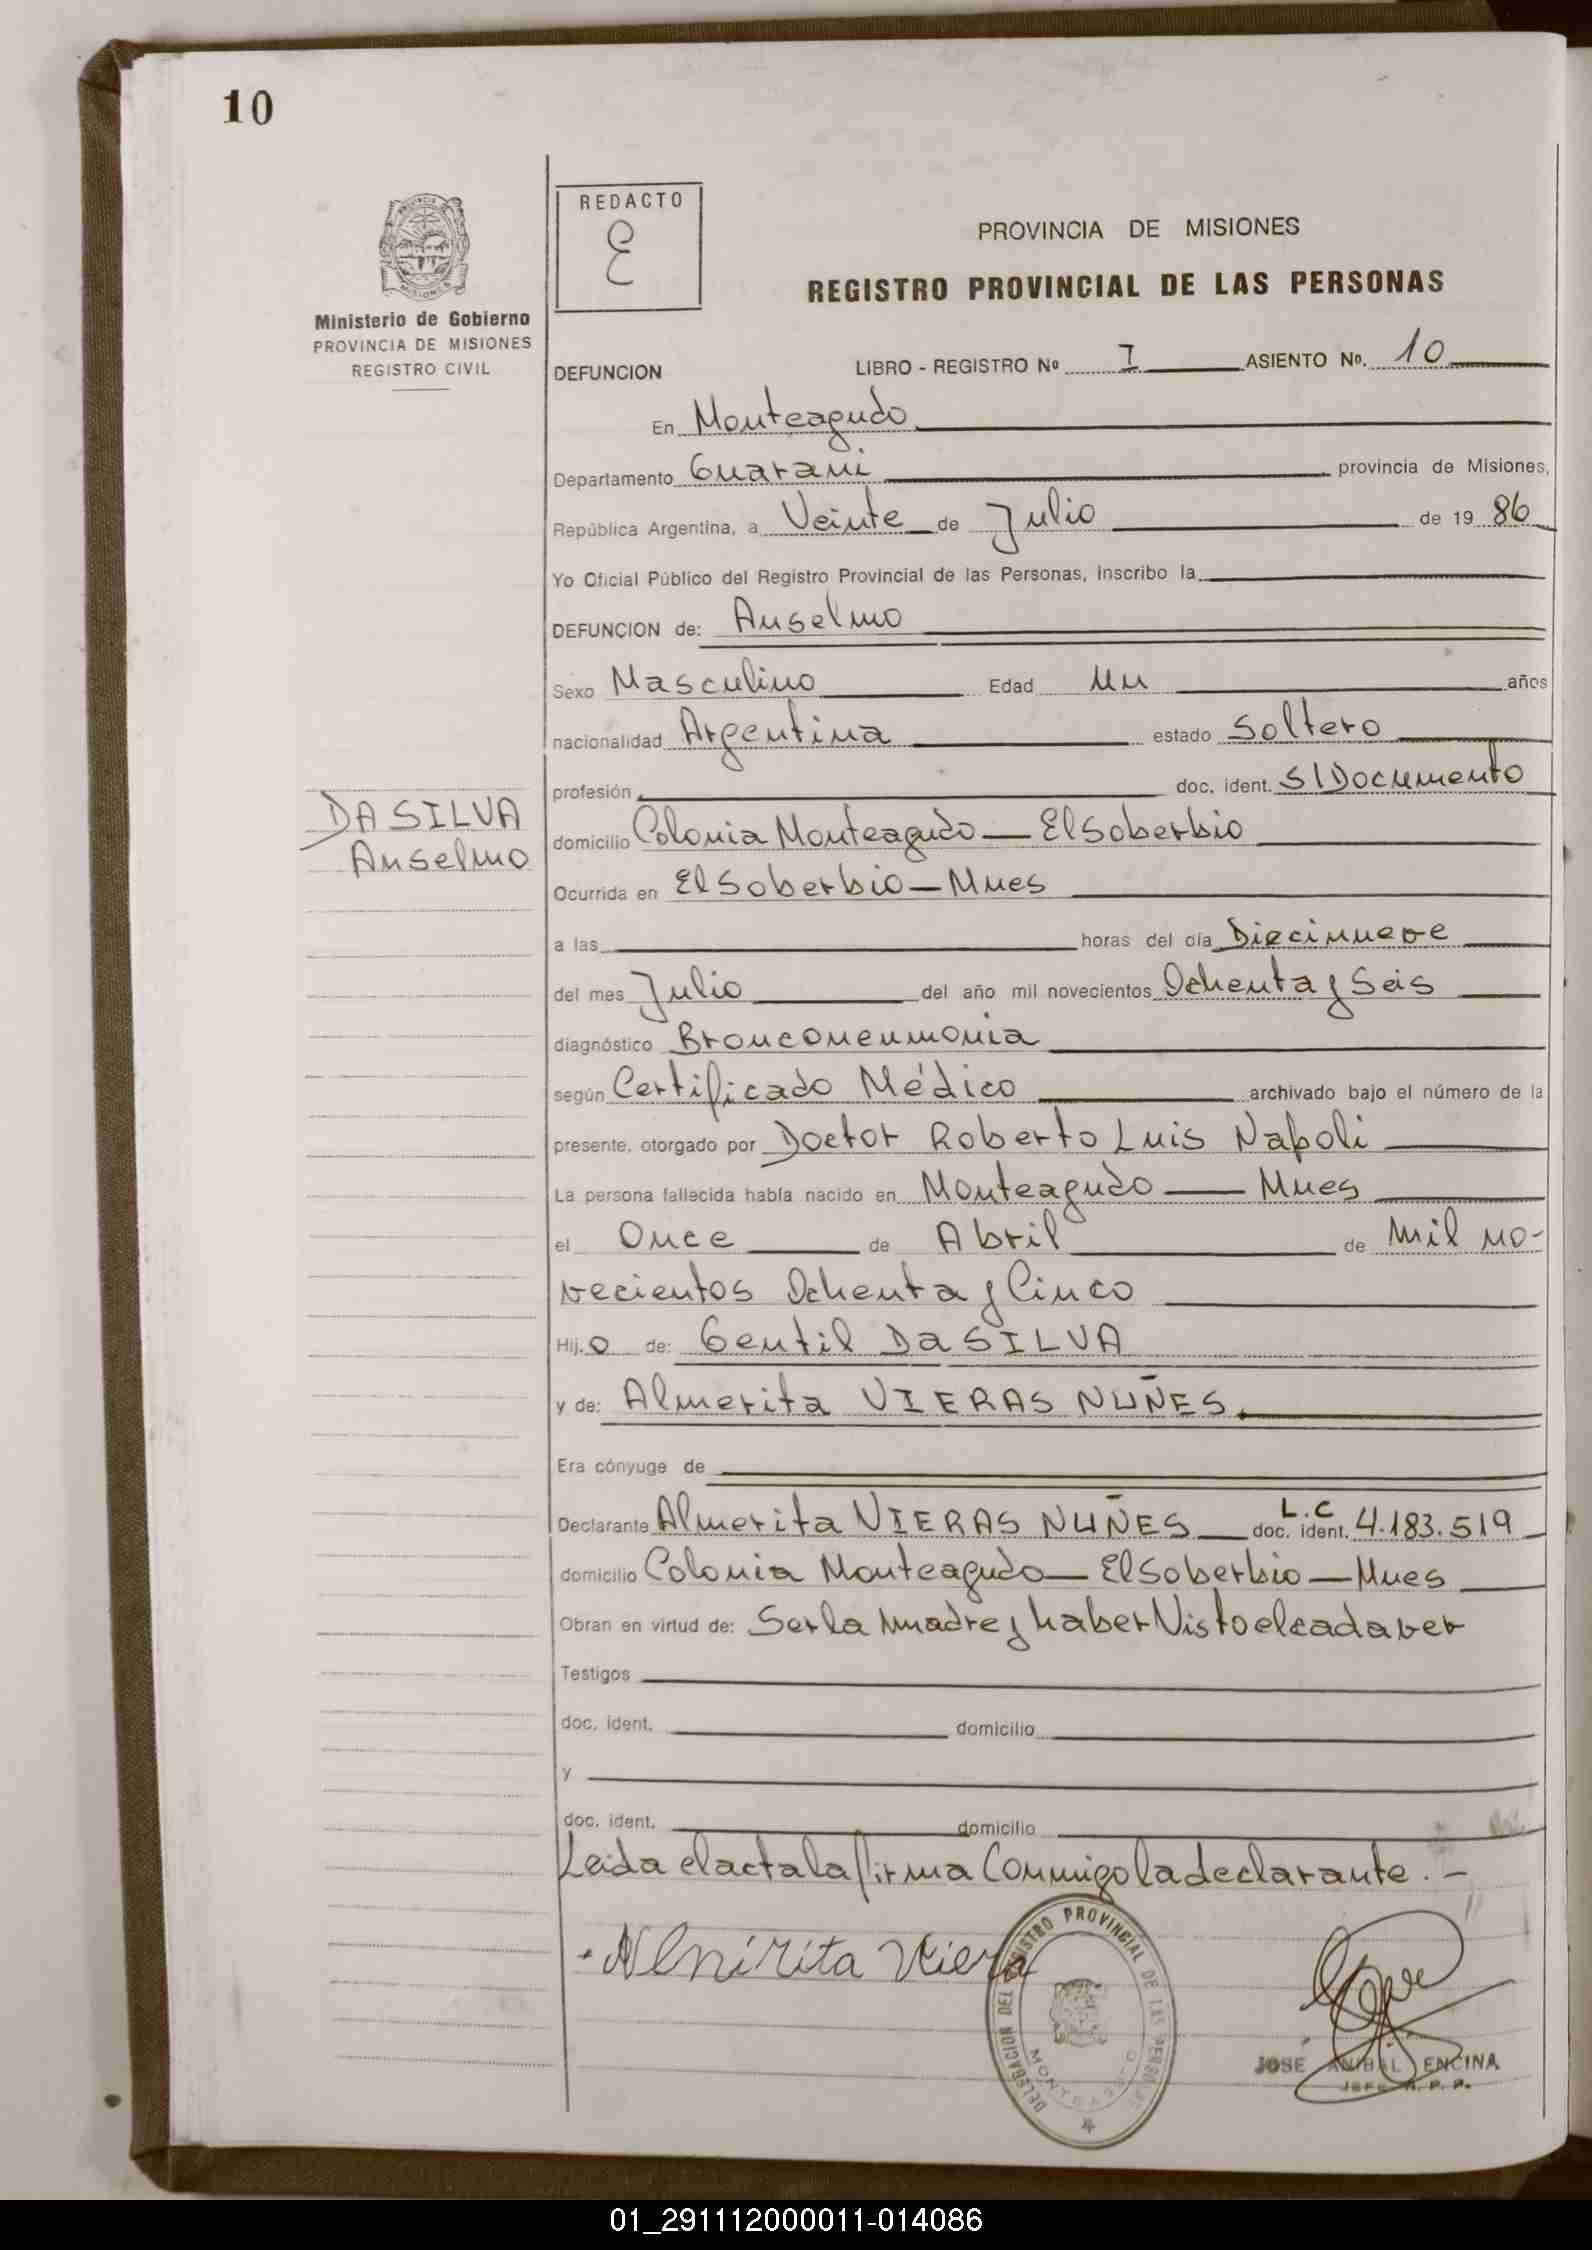 10
PROVINCIA DE
MISIONES
Ministerio de Gobierno
PROVINCIA DE MISIONES
REGISTRO CIVIL
REDACTO
E
PROVINCIA DE MISIONES
REGISTRO PROVINCIAL DE LAS PERSONAS
DEFUNCION LIBRO - REGISTRO Nº I ASIENTO Nº. 10
En Monteagudo
Departamento Guarani provincia de Misiones,
República Argentina, a Veinte de Julio de 19 86
Yo Oficial Público del Registro Provincial de las Personas, inscribo la
DEFUNCION de: Anselmo
Sexo Masculino Edad Un años
nacionalidad Argentina estado Soltero
profesión doc. ident. S/Documento
DA SILVA
Anselmo
domicilio Colonia Monteagudo — El Soberbio
Ocurrida en El Soberbio — Mnes
a las horas del día Diecinueve
del mes Julio del año mil novecientos Ochenta y Seis
diagnóstico Bronconeumonia
según Certificado Médico archivado bajo el número de la
presente, otorgado por Doctor Roberto Luis Napoli
La persona fallecida había nacido en Monteagudo — Mnes
el Once de Abril de Mil no-
vecientos Ochenta y Cinco
Hij. o de: Gentil Da SILVA
y de: Almerita VIERAS NUÑES.
Era cónyuge de
Declarante Almerita VIERAS NUÑES doc. ident. L.C 4.183.519
domicilio Colonia Monteagudo — El Soberbio — Mnes
Obran en virtud de: Ser la madre y haber Visto el cadaver
Testigos
doc. ident. domicilio
y
doc. ident. domicilio
Leida el acta la firma Conmigo la declarante . -
Almirita Viera
DELEGACION DEL REGISTRO PROVINCIAL DE LAS PERSONAS
MONTEAGUDO
JOSÉ ANIBAL ENCINA
JEFE R. P. P.
01_291112000011-014086